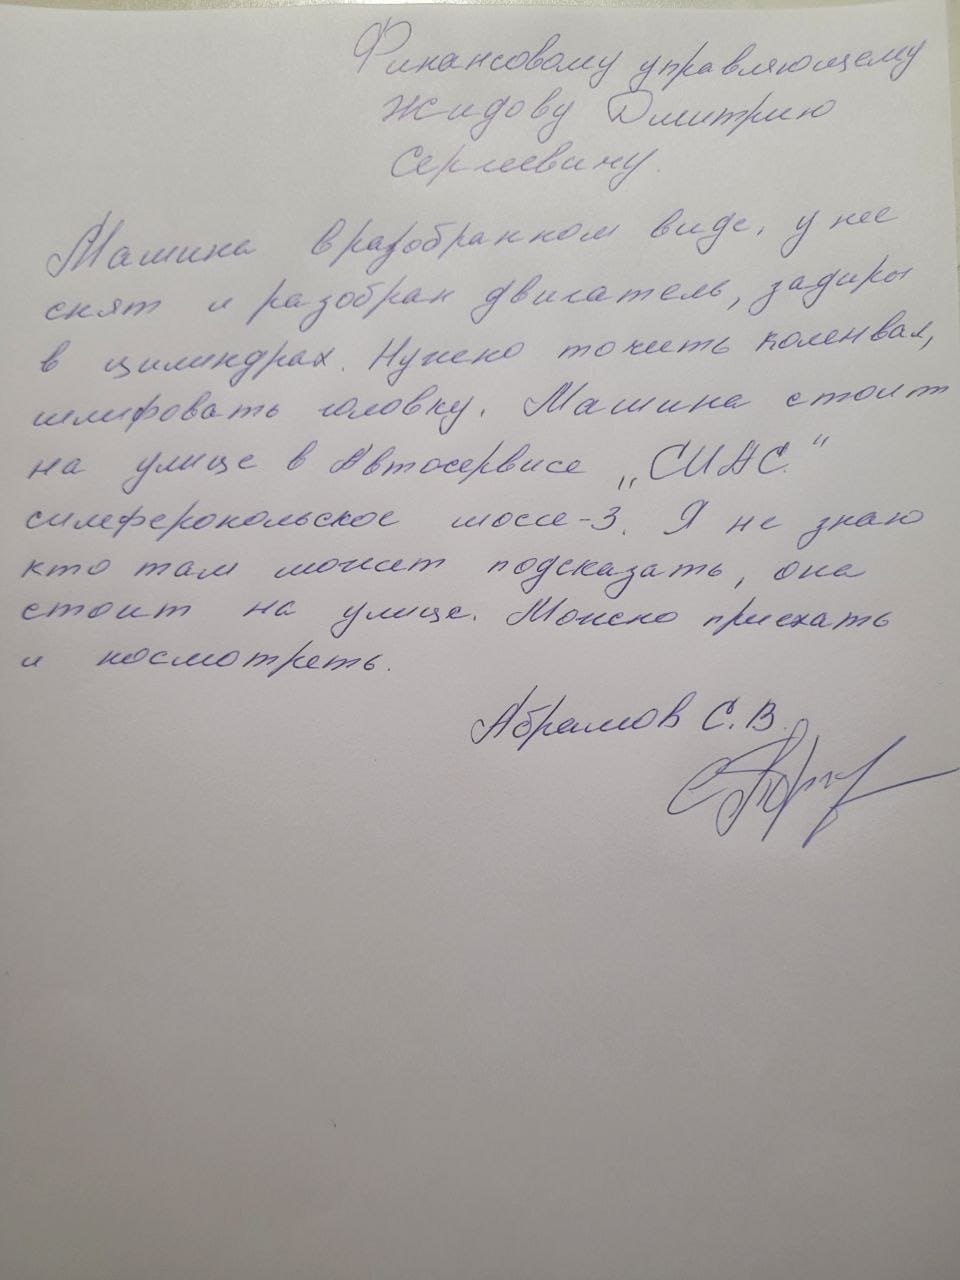 Финансовому управляющему
Жидову Дмитрию
Сергеевичу.
Машина в разобранном виде, у нее
снят и разобран двигатель, задиры
в цилиндрах. Нужно точить коленвал,
шлифовать головку. Машина стоит
на улице в Автосервисе „СИАС"
симферопольское шоссе-3. Я не знаю
кто там может подсказать, она
стоит на улице. Можно приехать
и посмотреть.
Абрамов С.В.